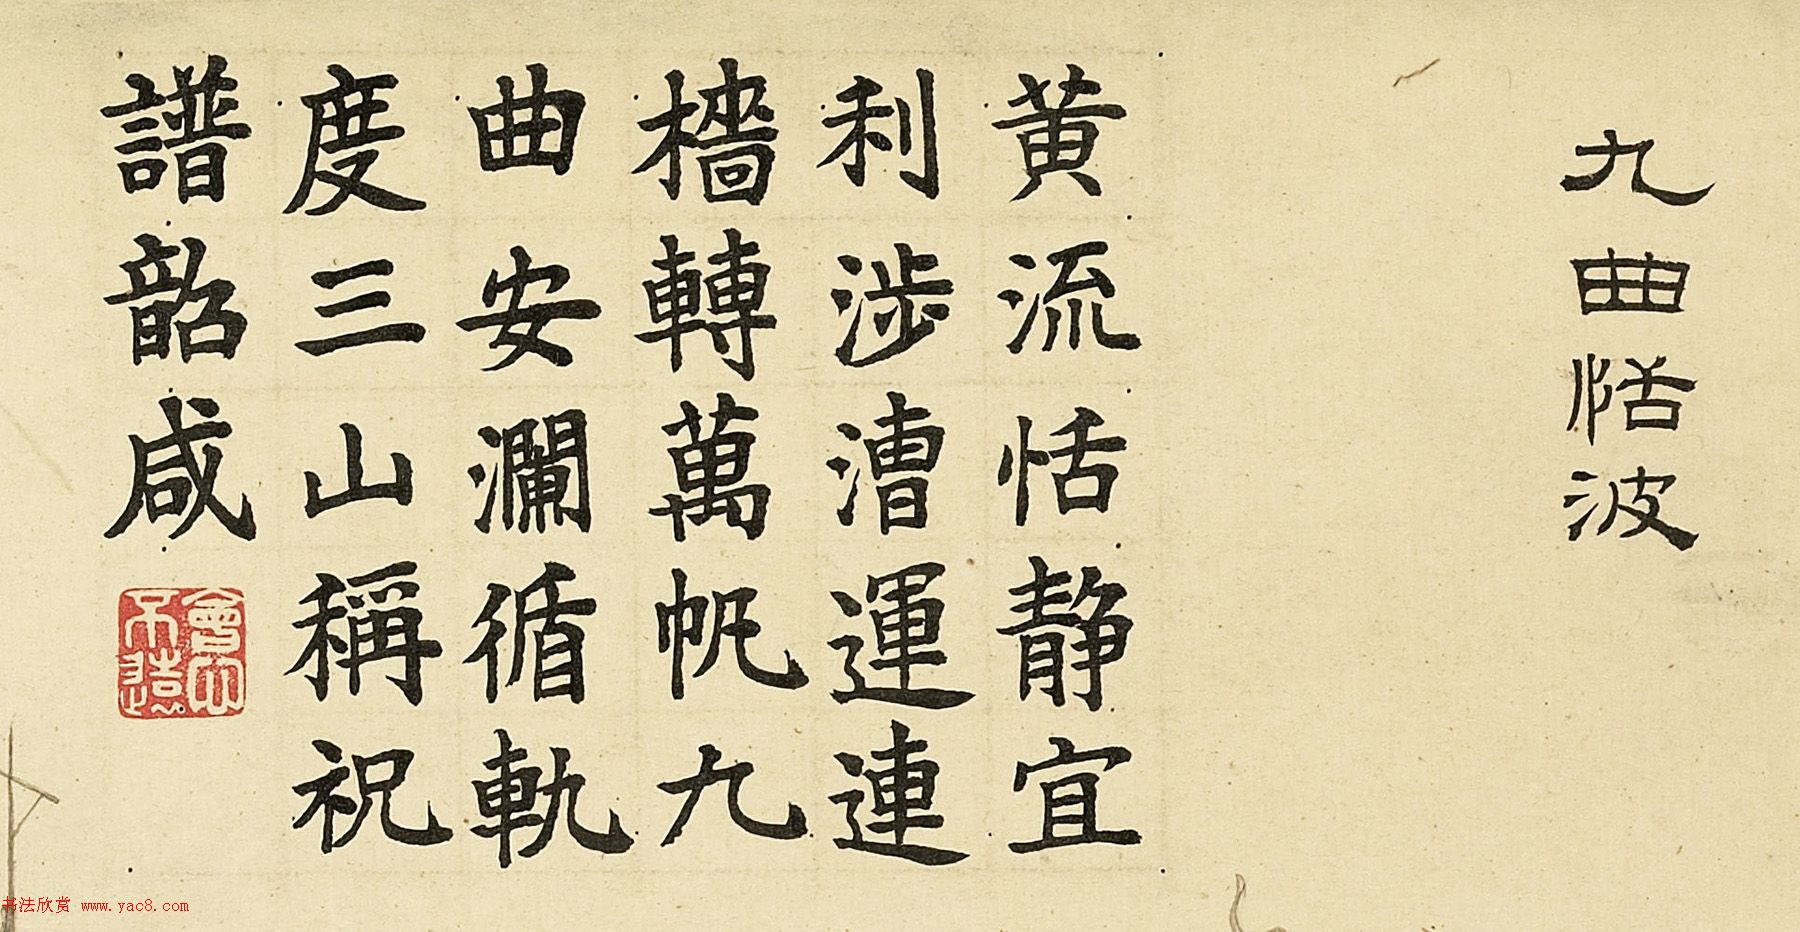 九曲恬波
黄流恬静宜
利涉漕運連
檣轉萬帆九
曲安瀾循軌
度三山稱祝
譜韶咸
會心不遠
书法欣赏 www.yac8.com